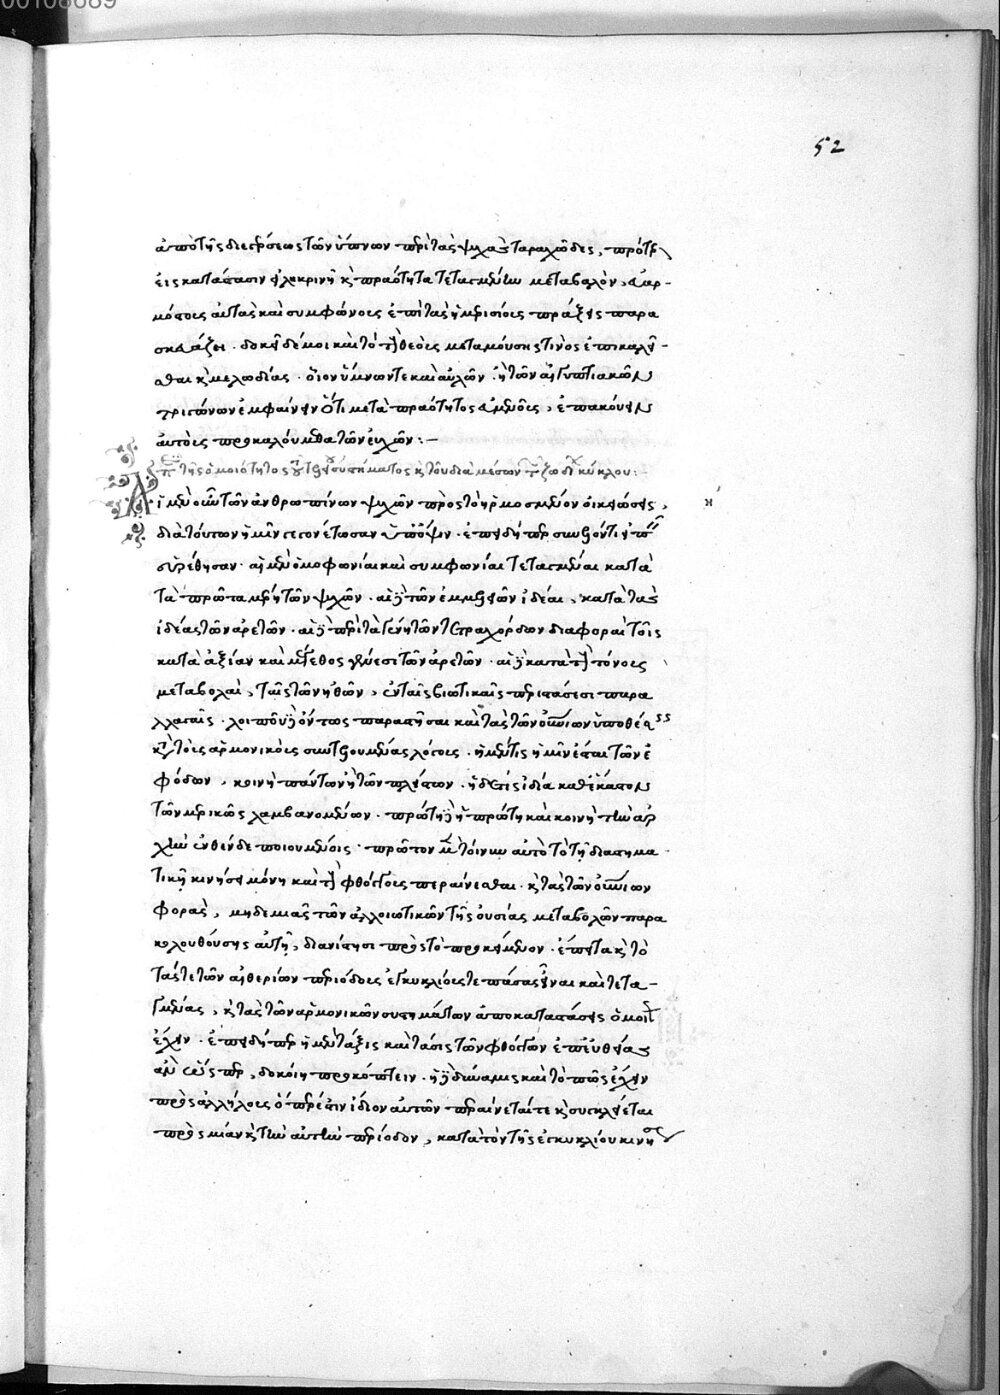 00108689
52
ἀπὸ τῆς διεγέρσεως τῶν ὕπνων περὶ τὰς ψυχὰς ταραχῶδες, πρότερ
εἰς κατάστασιν εἰλικρινῆ κ πραότητα τεταγμένην μεταβαλὸν, εὐαρ-
μόστους αὐτὰς καὶ συμφώνους ἐπὶ τὰς ἡμερισίους πράξεις παρα
σκευάζῃ. δοκεῖ δέ μοι καὶ τὸ τοὺς θεοὺς μετὰ μούσης τινὸς ἐπικαλεῖ-
σθαι κ μελῳδίας. οἷον ὕμνων τε καὶ αὐλῶν ἢ τῶν αἰγυπτιακῶν
τριγώνων ἐμφαίνειν ὅτι μετὰ πραότητος εὐμενοῦς, ἐπακούειν
αὐτοὺς προκαλούμεθα τῶν εὐχῶν:—
π τῆς ὁμοιότητος τοῦ τε συστήματος κ τοῦ διὰ μέσων τ ζωδ κύκλου:
Αἱ μὲν οὖν τῶν ἀνθρωπίνων ψυχῶν πρὸς τὸ ἡρμοσμένον οἰκειώσεις,
διὰ τούτων ἡμῖν γεγονέτωσαν ὑπόψιν. ἐπειδήπερ συνῆ
εὑρέθησαν. αἱ μὲν ὁμοφωνίαι καὶ συμφωνίαι τεταγμέναι κατὰ
τὰ πρῶτα μέρη τῶν ψυχῶν. αἱ δὲ τῶν ἐμμελῶν ἰδέαι, κατὰ τὰς
ἰδέας τῶν ἀρετῶν. αἱ δὲ περὶ τὰ γένη τῶν τετραχόρδων διαφοραὶ τοῖς
κατὰ ἀξίαν καὶ μέγεθος γένεσι τῶν ἀρετῶν. αἱ δὲ κατὰ τοὺς τόνους
μεταβολαὶ, ταῖς τῶν ἠθῶν, ἐν ταῖς βιωτικαῖς περιστάσεσι παρα
λλαγαῖς. λοιποῦ δ ὄντος παραστῆσαι καὶ τὰς τῶν οὐρανίων ὑποθέσεις
κ τοὺς ἁρμονικοὺς συντελουμένας λόγους. ἡ μέν τις ἡμῖν ἔσται τῶν ἐ
φόδων, κοινὴ πάντων ἢ τῶν πλείστων. ἡ δέ τις ἰδία καθ' ἕκαστον
τῶν μερικῶς λαμβανομένων. πρώτη δὲ ἡ πρώτη καὶ κοινὴ τὴν ἀρ
χὴν ἐνθένδε ποιουμένοις. πρῶτον μὲν τοίνυν αὐτὸ τὸ τῇ διαστημα
τικῇ κινήσει μόνῃ καὶ τοὺς φθόγγους περαίνεσθαι. κ τὰς τῶν οὐρανίων
φορὰς, μηδεμιᾶς τῶν ἀλλοιωτικῶν τῆς οὐσίας μεταβολῶν παρα
κολουθούσης αὐτῇ, διανίστησι πρὸς τὸ προκείμενον. ἔπειτα κ τὸ
τάς τε τῶν αἰθερίων περιόδους ἐγκυκλίους τε πάσας εἶναι καὶ τετα-
γμένας, κ τὰς τῶν ἁρμονικῶν συστημάτων ἀποκαταστάσεις ὁμοίως
ἔχειν. ἐπειδήπερ ἡ μὲν τάξις καὶ τάσις τῶν φθόγγων ἐπ' εὐθείας
ὥσπερ, δοκοίη προκόπτειν. ἡ δὲ δύναμις καὶ τὸ πῶς ἔχειν
πρὸς ἀλλήλους ὅπερ ἐστὶν ἴδιον αὐτῶν περαίνεταί τε κ συγκλείεται
πρὸς μίαν κ τὴν αὐτὴν περίοδον, κατὰ τὸν τῆς ἐγκυκλίου κινή